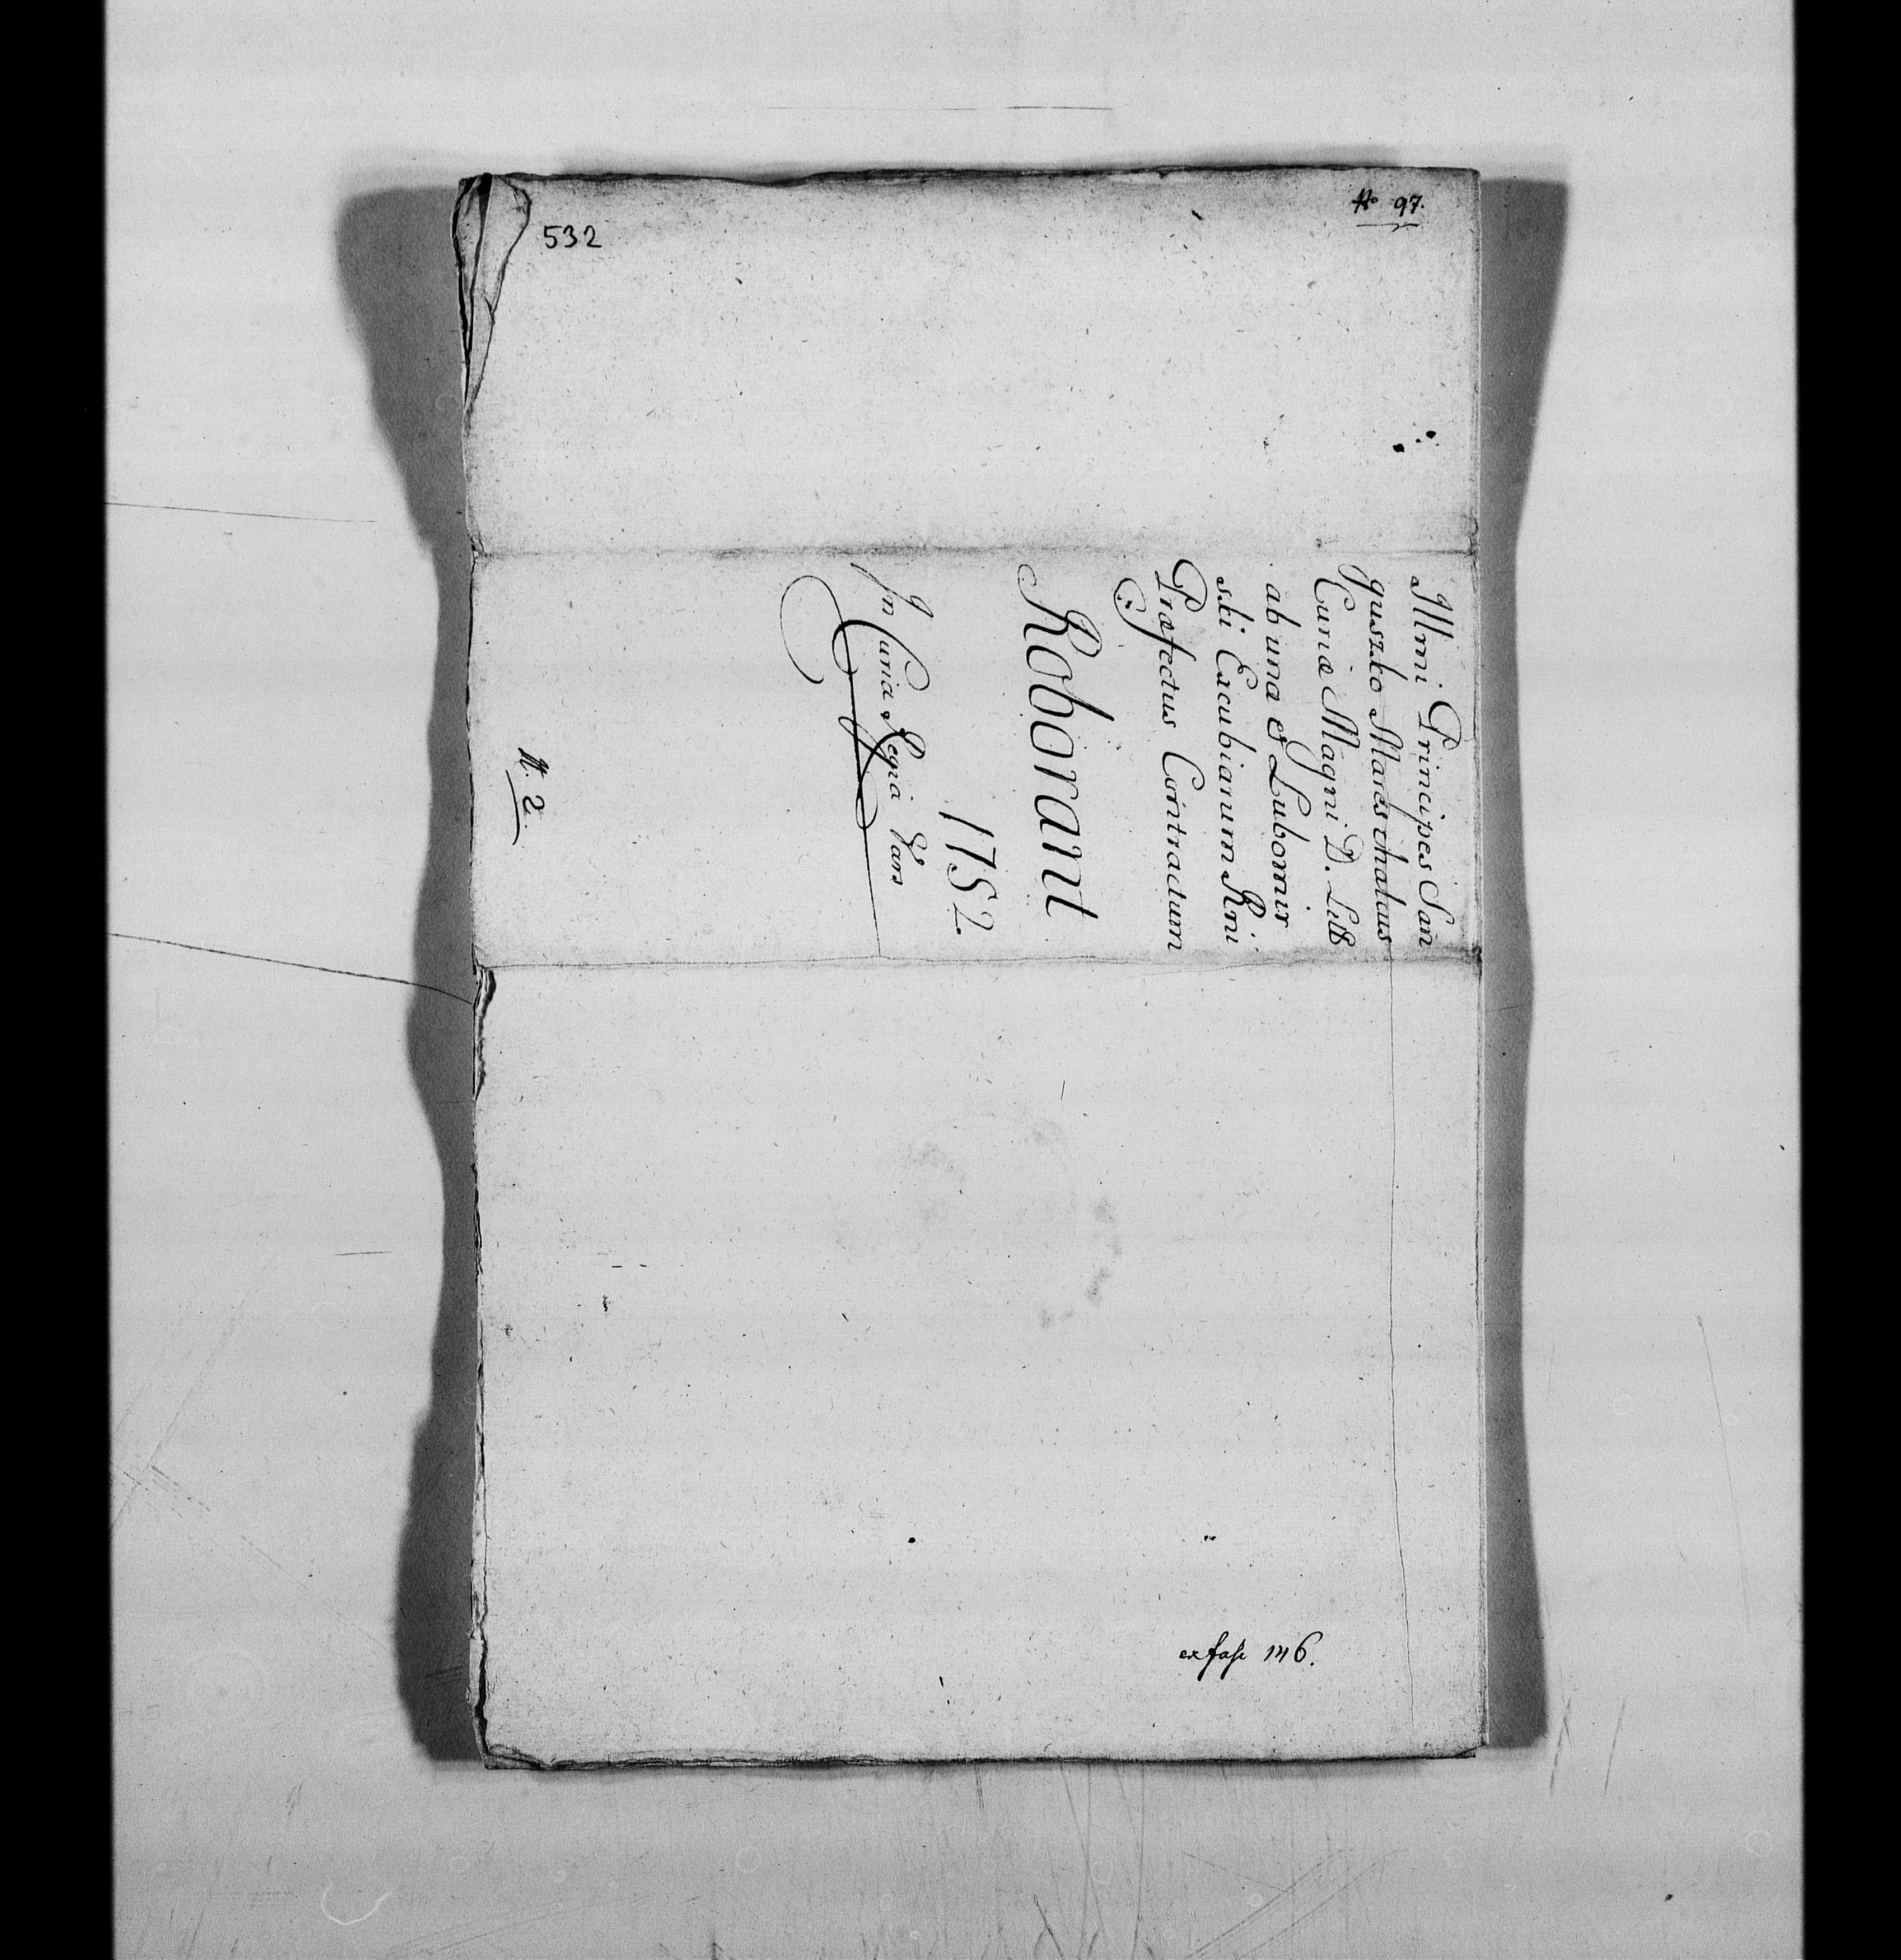 532
No 97.
Illmi Principes San
guszko Mareschalcus
Curiæ Magni D. Litt
ab una et Lubomir
ski Excubiarum Rni
Præfectus Contractum
Roborant
1752.
In Curia Regia Vars
N. 2.
ex fasc 146.